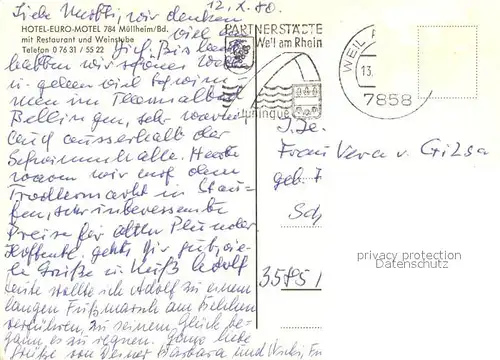 12. X. 80.
Liebe Mutti, wir denken
HOTEL-EURO-MOTEL 784 Müllheim/Bd.
mit Restaurant und Weinstube
Telefon 0 76 31 / 55 22
viel an
Dich. Bis heute
hatten wir schönes
u. gehen viel schwim
men im Thermalbad
Bellingen, sehr warm
auch ausserhalb der
Schwimmhalle. Heute
waren wir auf dem
Trödlermarkt in Stau-
fen, sehr interessante
Preise für alten Plunder
Hoffentl. geht's Dir gut, vie-
le Grüße u. Kuß Adolf
Heute wollte ich Adolf zu einem
langen Fußmarsch am Belchen
verführen, zu seinem Glück be-
gann es zu regnen. Ganz liebe
Grüße von Deiner Barbara und
PARTNERSTÄDTE
Weil am Rhein
Huningue
WEIL
13.
7858
I. De.
Frau Vera v. Gilsa
geb.
3575
privacy protection
Datenschutz